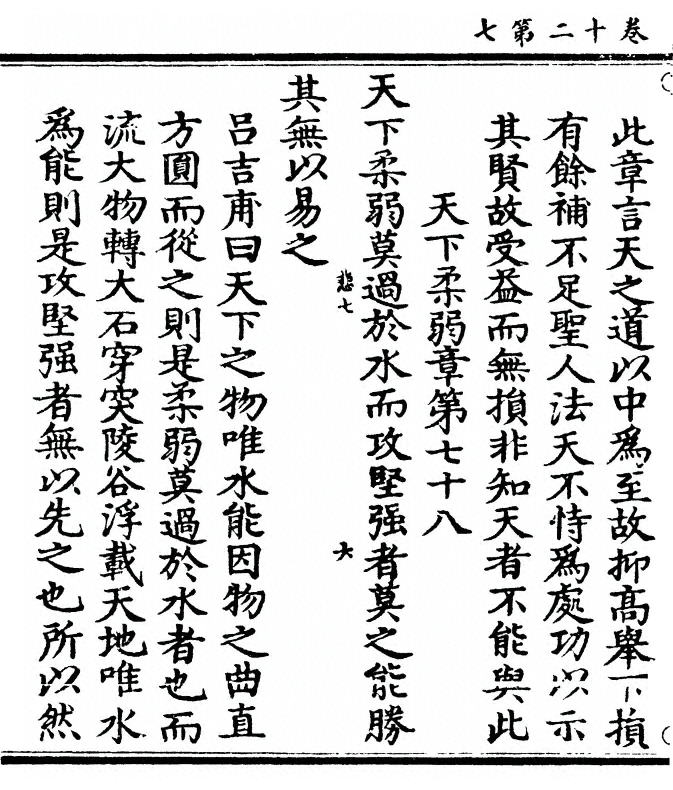 卷十二第七
此章言天之道以中爲至故抑高舉下損
有餘補不足聖人法天不恃爲處功以示
其賢故受益而無損非知天者不能與此
天下柔弱章第七十八
天下柔弱莫過於水而攻堅强者莫之能勝
悲七
六
其無以易之
呂吉甫曰天下之物唯水能因物之曲直
方圓而從之則是柔弱莫過於水者也而
流大物轉大石穿突陵谷浮載天地唯水
爲能則是攻堅强者無以先之也所以然